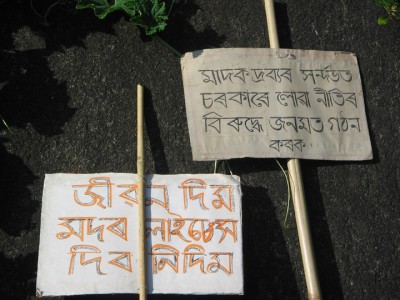 মাদক দ্ৰব্যৰ সন্দৰ্ভত
চৰকাৰে লোৱা নীতিৰ
বিৰুদ্ধে জনমত গঠন
কৰক
জীৱন দিম
মদৰ লাইচেন্স
দিব নিদিম